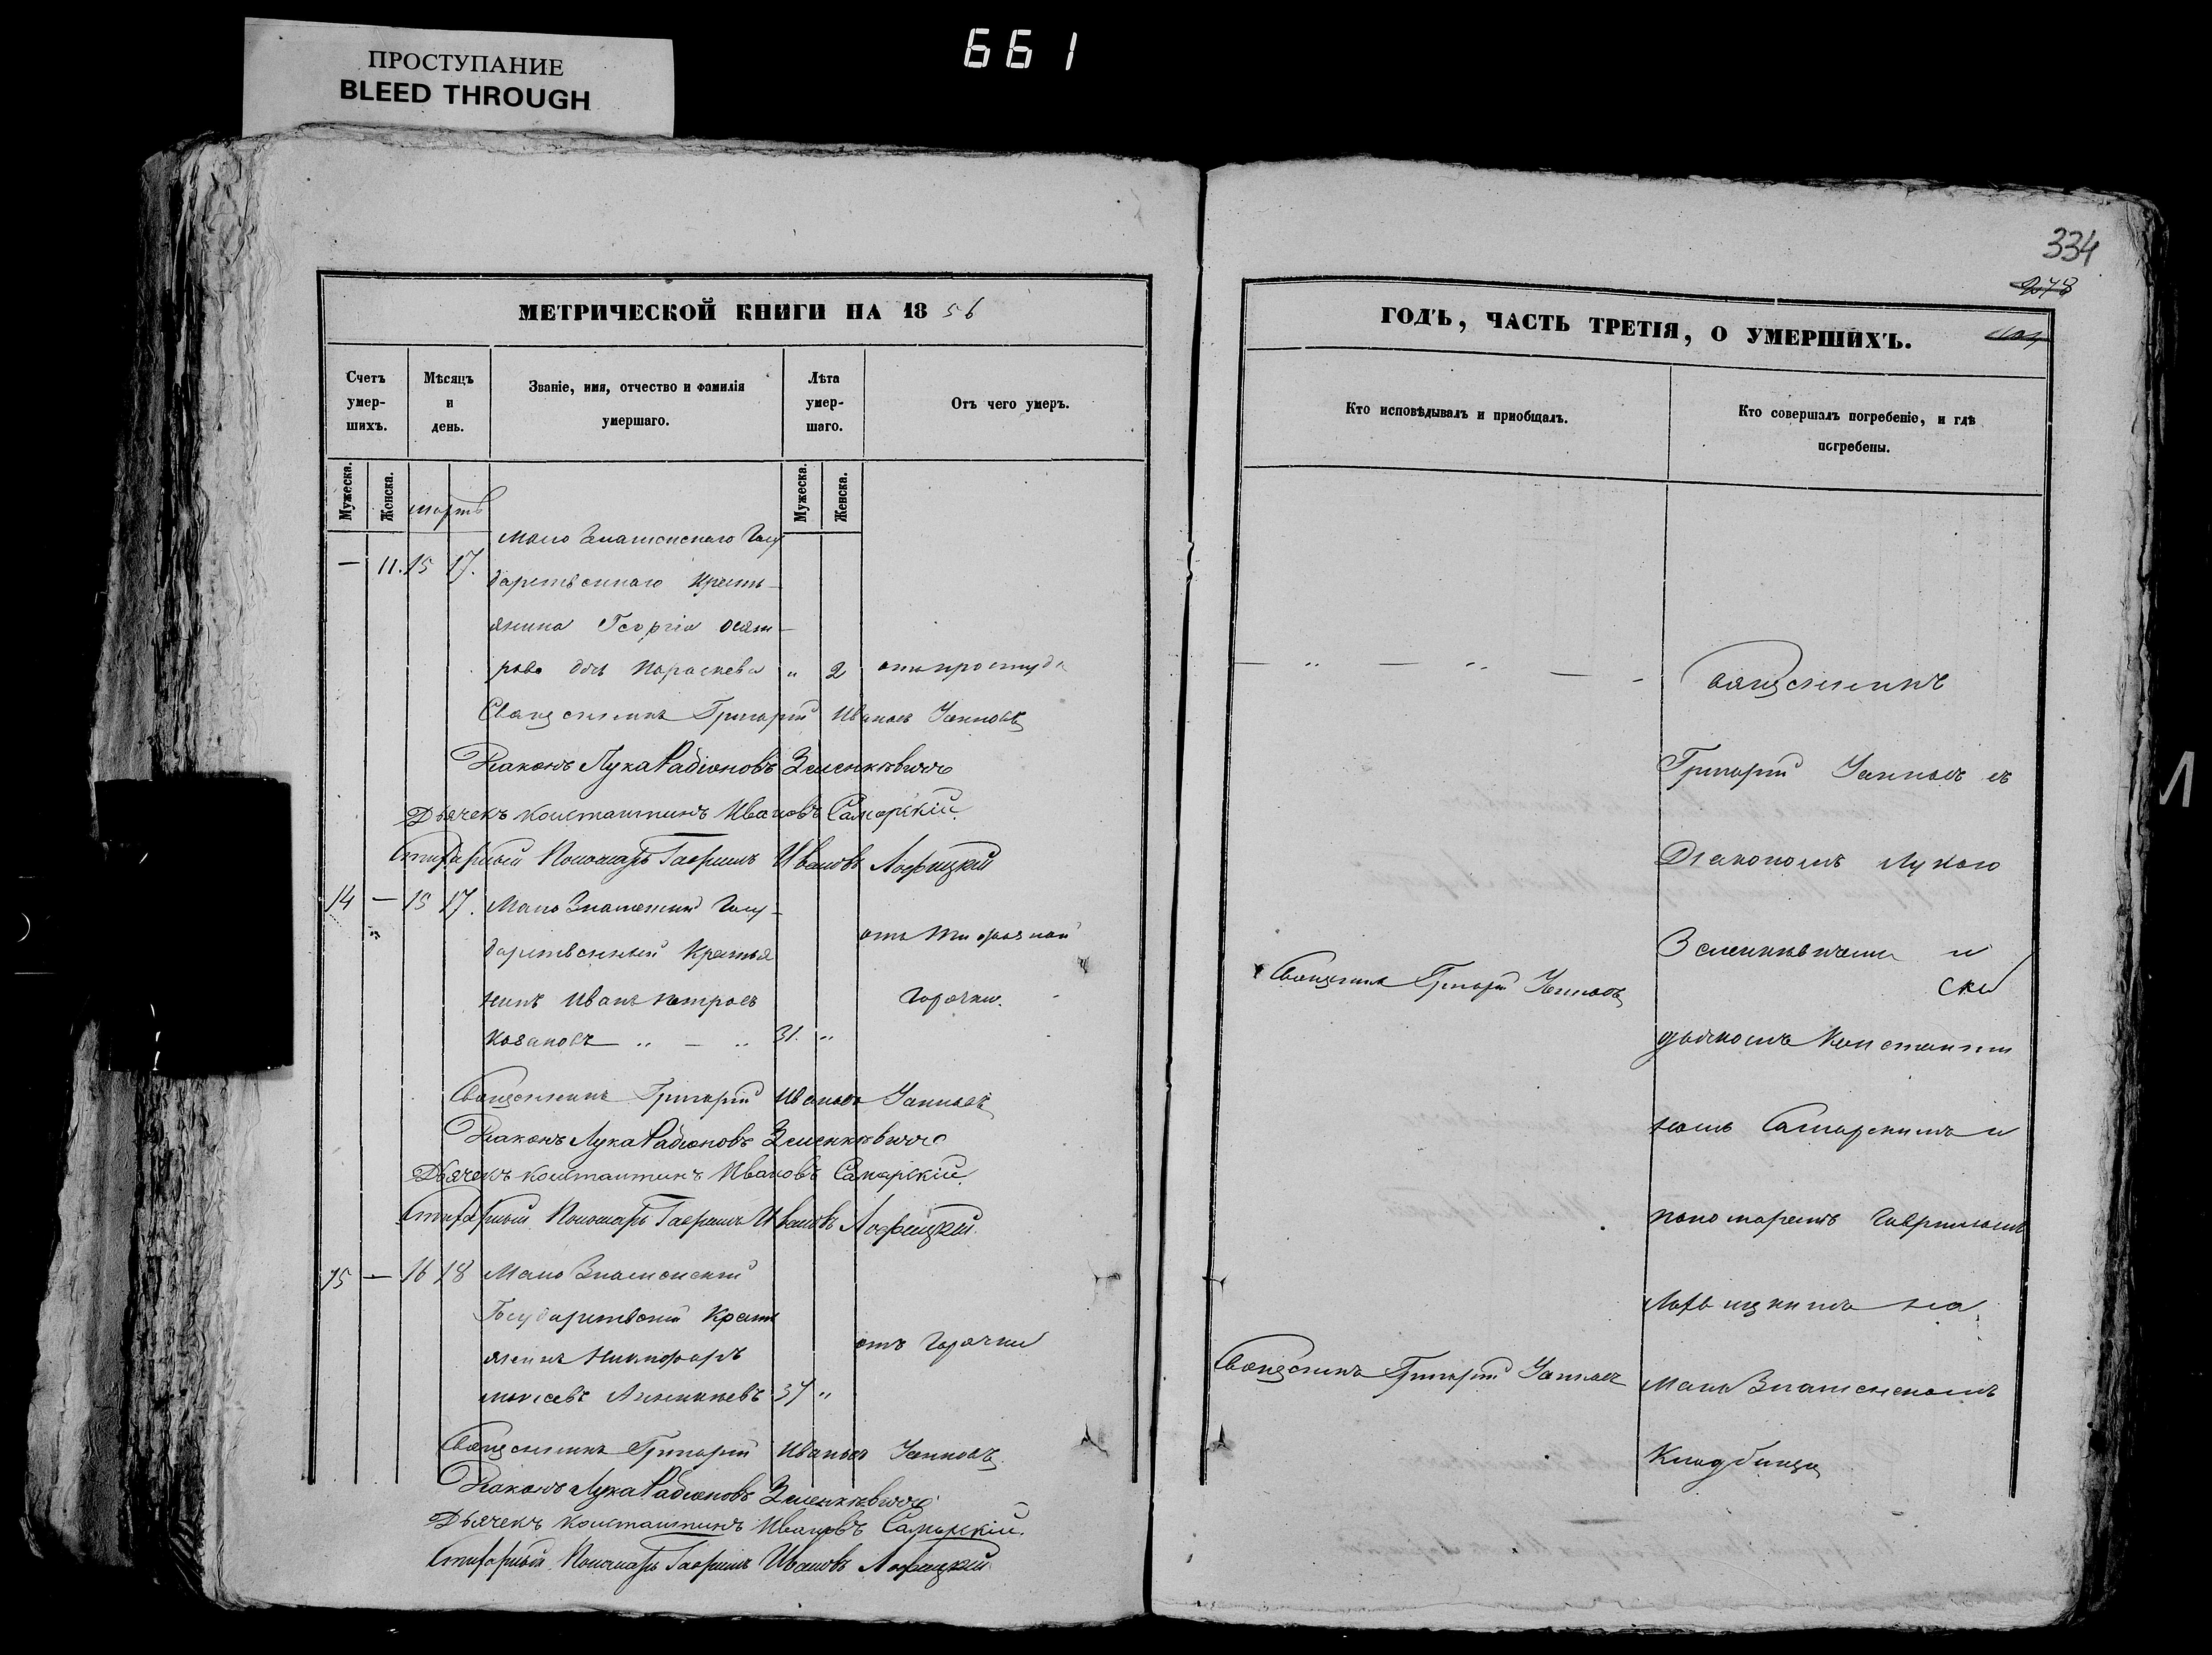 661
ПРОСТУПАНИЕ
BLEED THROUGH
334
278
МЕТРИЧЕСКОЙ КНИГИ НА 18 56
Счетъ умер- шихъ.
Мѣсяцъ и день.
Званіе, имя, отчество и фамилія умершаго.
Лѣта умер- шаго.
Отъ чего умеръ.
Мужеска.
Женска.
Мужеска.
Женска.
мартъ
Мало Знаменскаго Госу-
— 11. 15 17. дарственнаго Кресть-
янина Георгія
дочь Параскева " 2 отъ простуды
Священникъ Григорій Ивановъ
Діаконъ Лука Радіоновъ Зеленкѣвичъ
Дьячекъ Константинъ Ивановъ Самарскій.
Стихарный Пономарь Гавріилъ Ивановъ Лофицкій
14 — 15 17. Мало Знаменскій Госу-
дарственный Крестья
нинъ Иванъ Петровъ
Казановъ — " — " 31. "
отъ
Горячки.
Священникъ Григорій Ивановъ
Діаконъ Лука Радіоновъ Зеленкѣвичъ
Дьячекъ Константинъ Ивановъ Самарскій.
Стихарный Пономарь Гавріилъ Ивановъ Лофицкій.
15 — 16 18 Мало Знаменскій
Государственный Кресть
янинъ Никифоръ
Моисеевъ 37 "
отъ Горячки
Священникъ Григорій Ивановъ
Діаконъ Лука Радіоновъ Зеленкѣвичъ
Дьячекъ Константинъ Ивановъ Самарскій.
Стихарный Пономарь Гавріилъ Ивановъ Лофицкій
ГОДЪ, ЧАСТЬ ТРЕТІЯ, О УМЕРШИХЪ.
Кто исповѣдывалъ и пріобщалъ.
Кто совершалъ погребеніе, и гдѣ погребены.
— " — " — -
Священникъ Григорій
Священникъ Григорій
Священникъ
Григорій съ
Діакономъ Лукою
Зеленкѣвичемъ и
дьячкомъ Константи
номъ Самарскимъ и
пономаремъ Гавріиломъ
Лофицкимъ на
Мало Знаменскомъ
Кладбищѣ